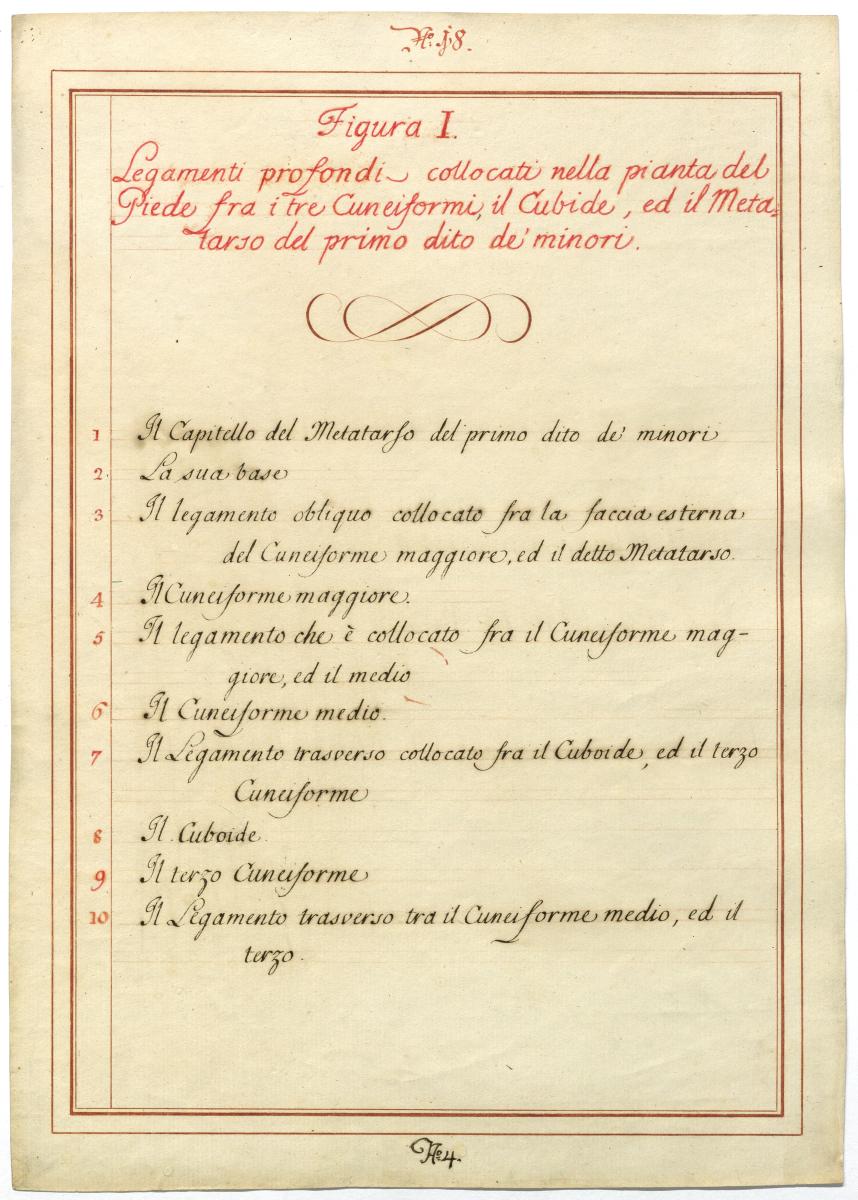 No. 18.
Figura I.
Legamenti profondi collocati nella pianta del
Piede fra i tre Cuneiformi, il Cubide, ed il Meta-
tarso del primo dito de' minori.
1 Il Capitello del Metatarso del primo dito de' minori
2. La sua base
3 Il legamento obliquo collocato fra la faccia esterna
del Cuneiforme maggiore, ed il detto Metatarso.
4 Il Cuneiforme maggiore.
5 Il legamento che è collocato fra il Cuneiforme mag-
giore, ed il medio
6 Il Cuneiforme medio.
7 Il Legamento trasverso collocato fra il Cuboide, ed il terzo
Cuneiforme
8 Il Cuboide.
9 Il terzo Cuneiforme
10 Il Legamento trasverso tra il Cuneiforme medio, ed il
terzo.
No. 4.